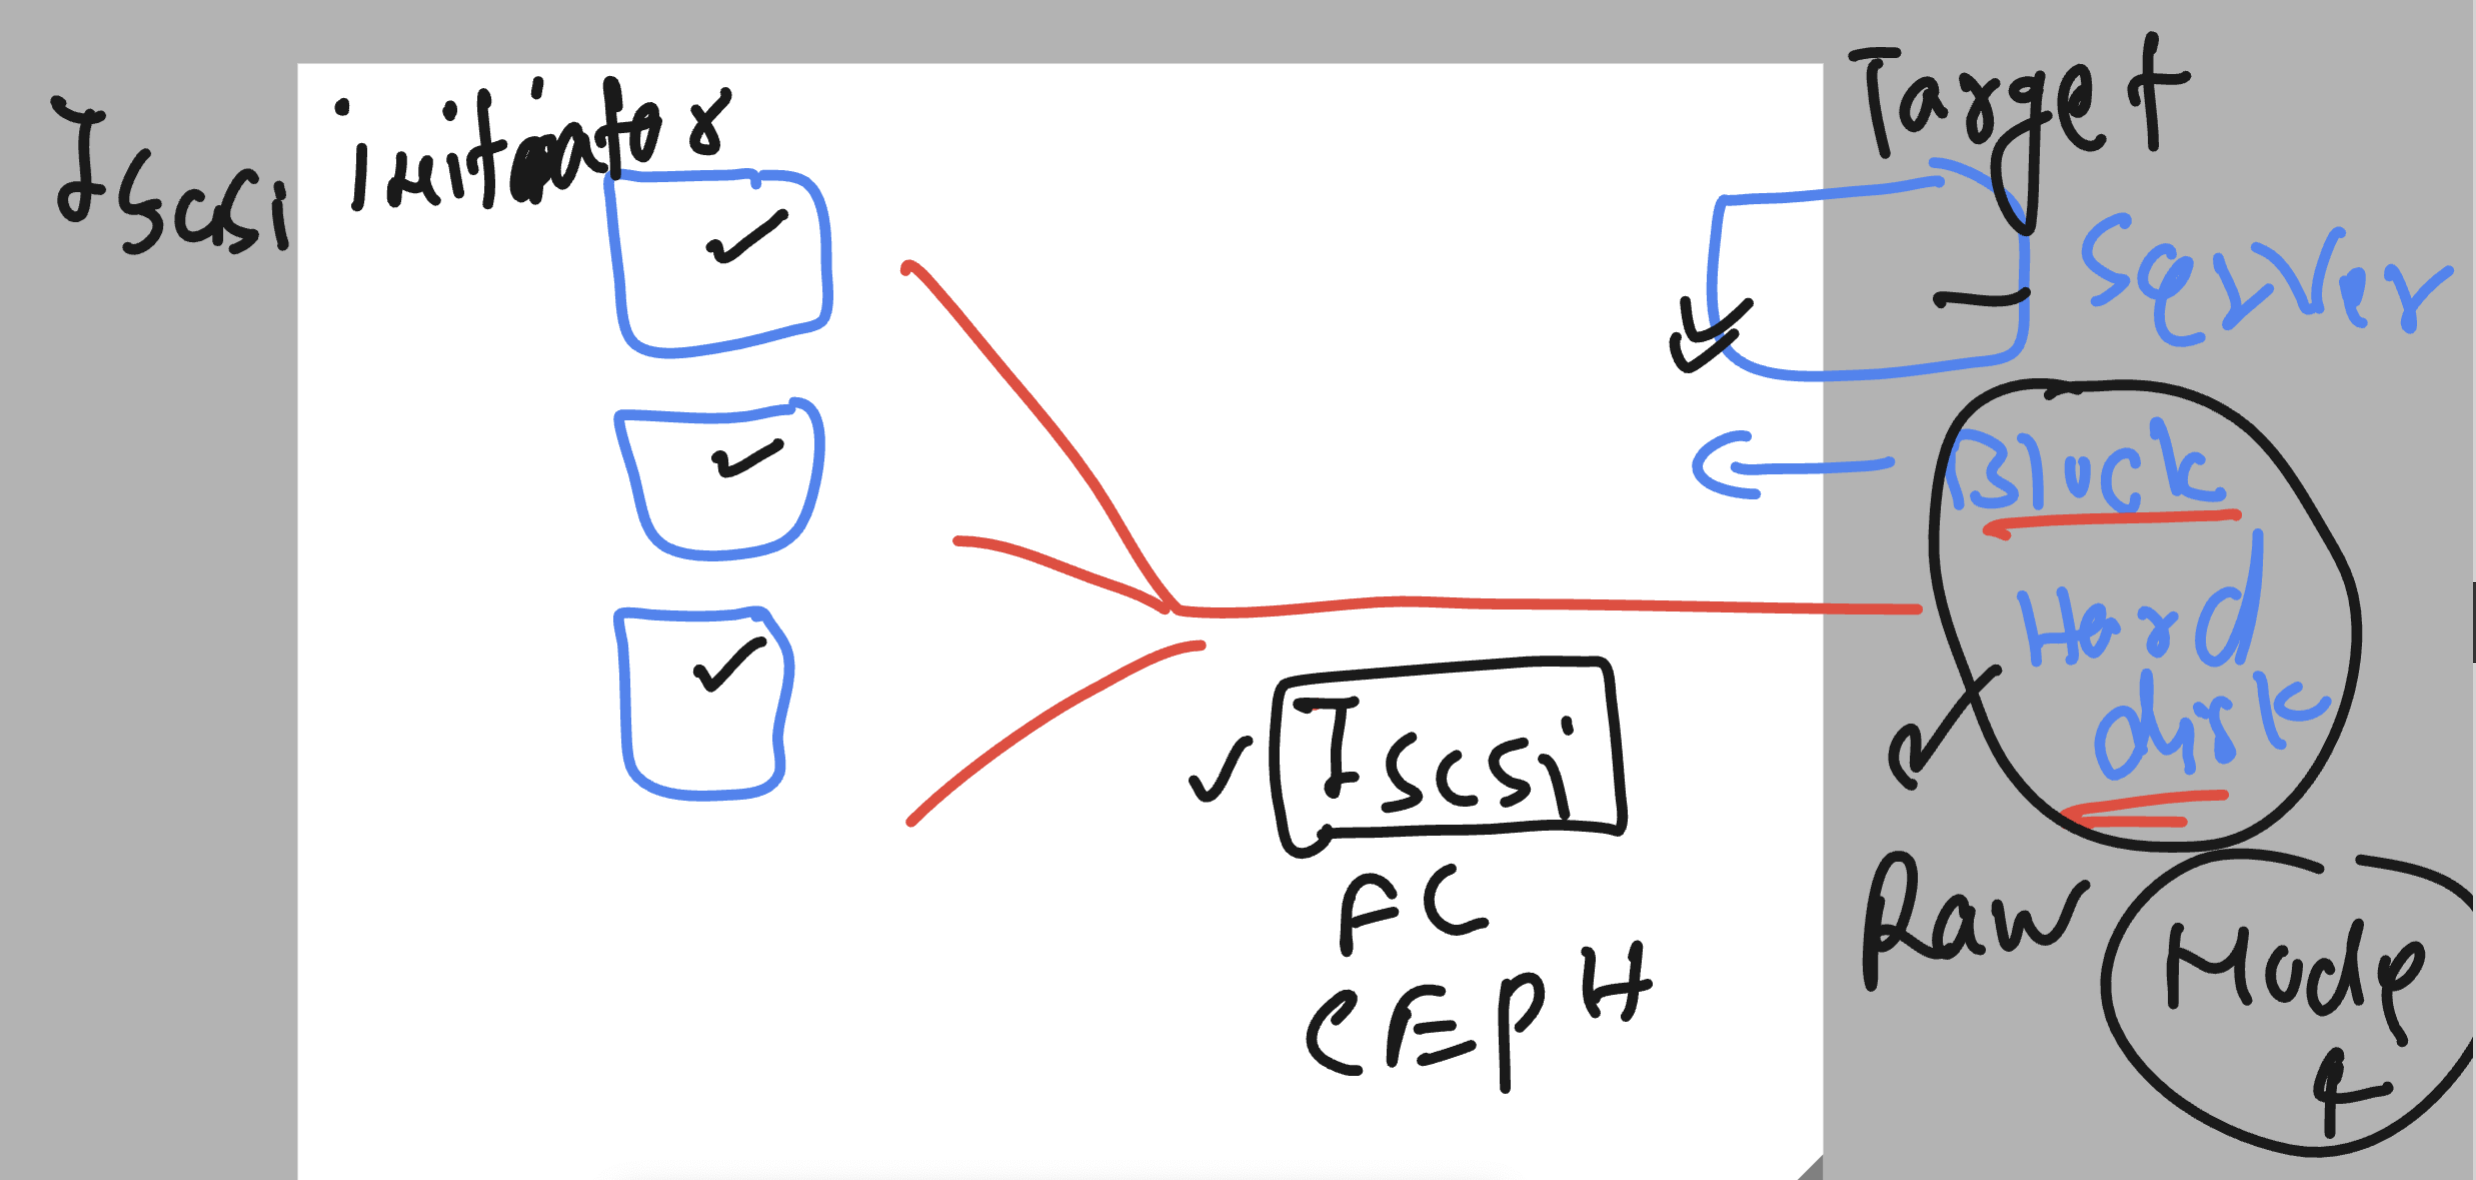 Iscsi initiator
Target
Server
Block
Hard
disk
Iscsi
FC
CEPH
Raw
Mode